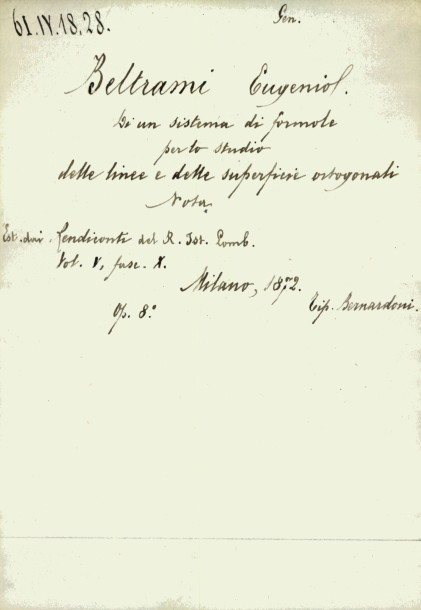 61.IV.18.28.
Gen.
Beltrami Eugenio.
Di un sistema di formole
per lo studio
delle linee e delle superficie ortogonali
Nota.
Est. dai Rendiconti del R. Ist. Lomb.
Vol. V, fasc. X.
Milano, 1872.
Tip. Bernardoni.
Op. 8.°